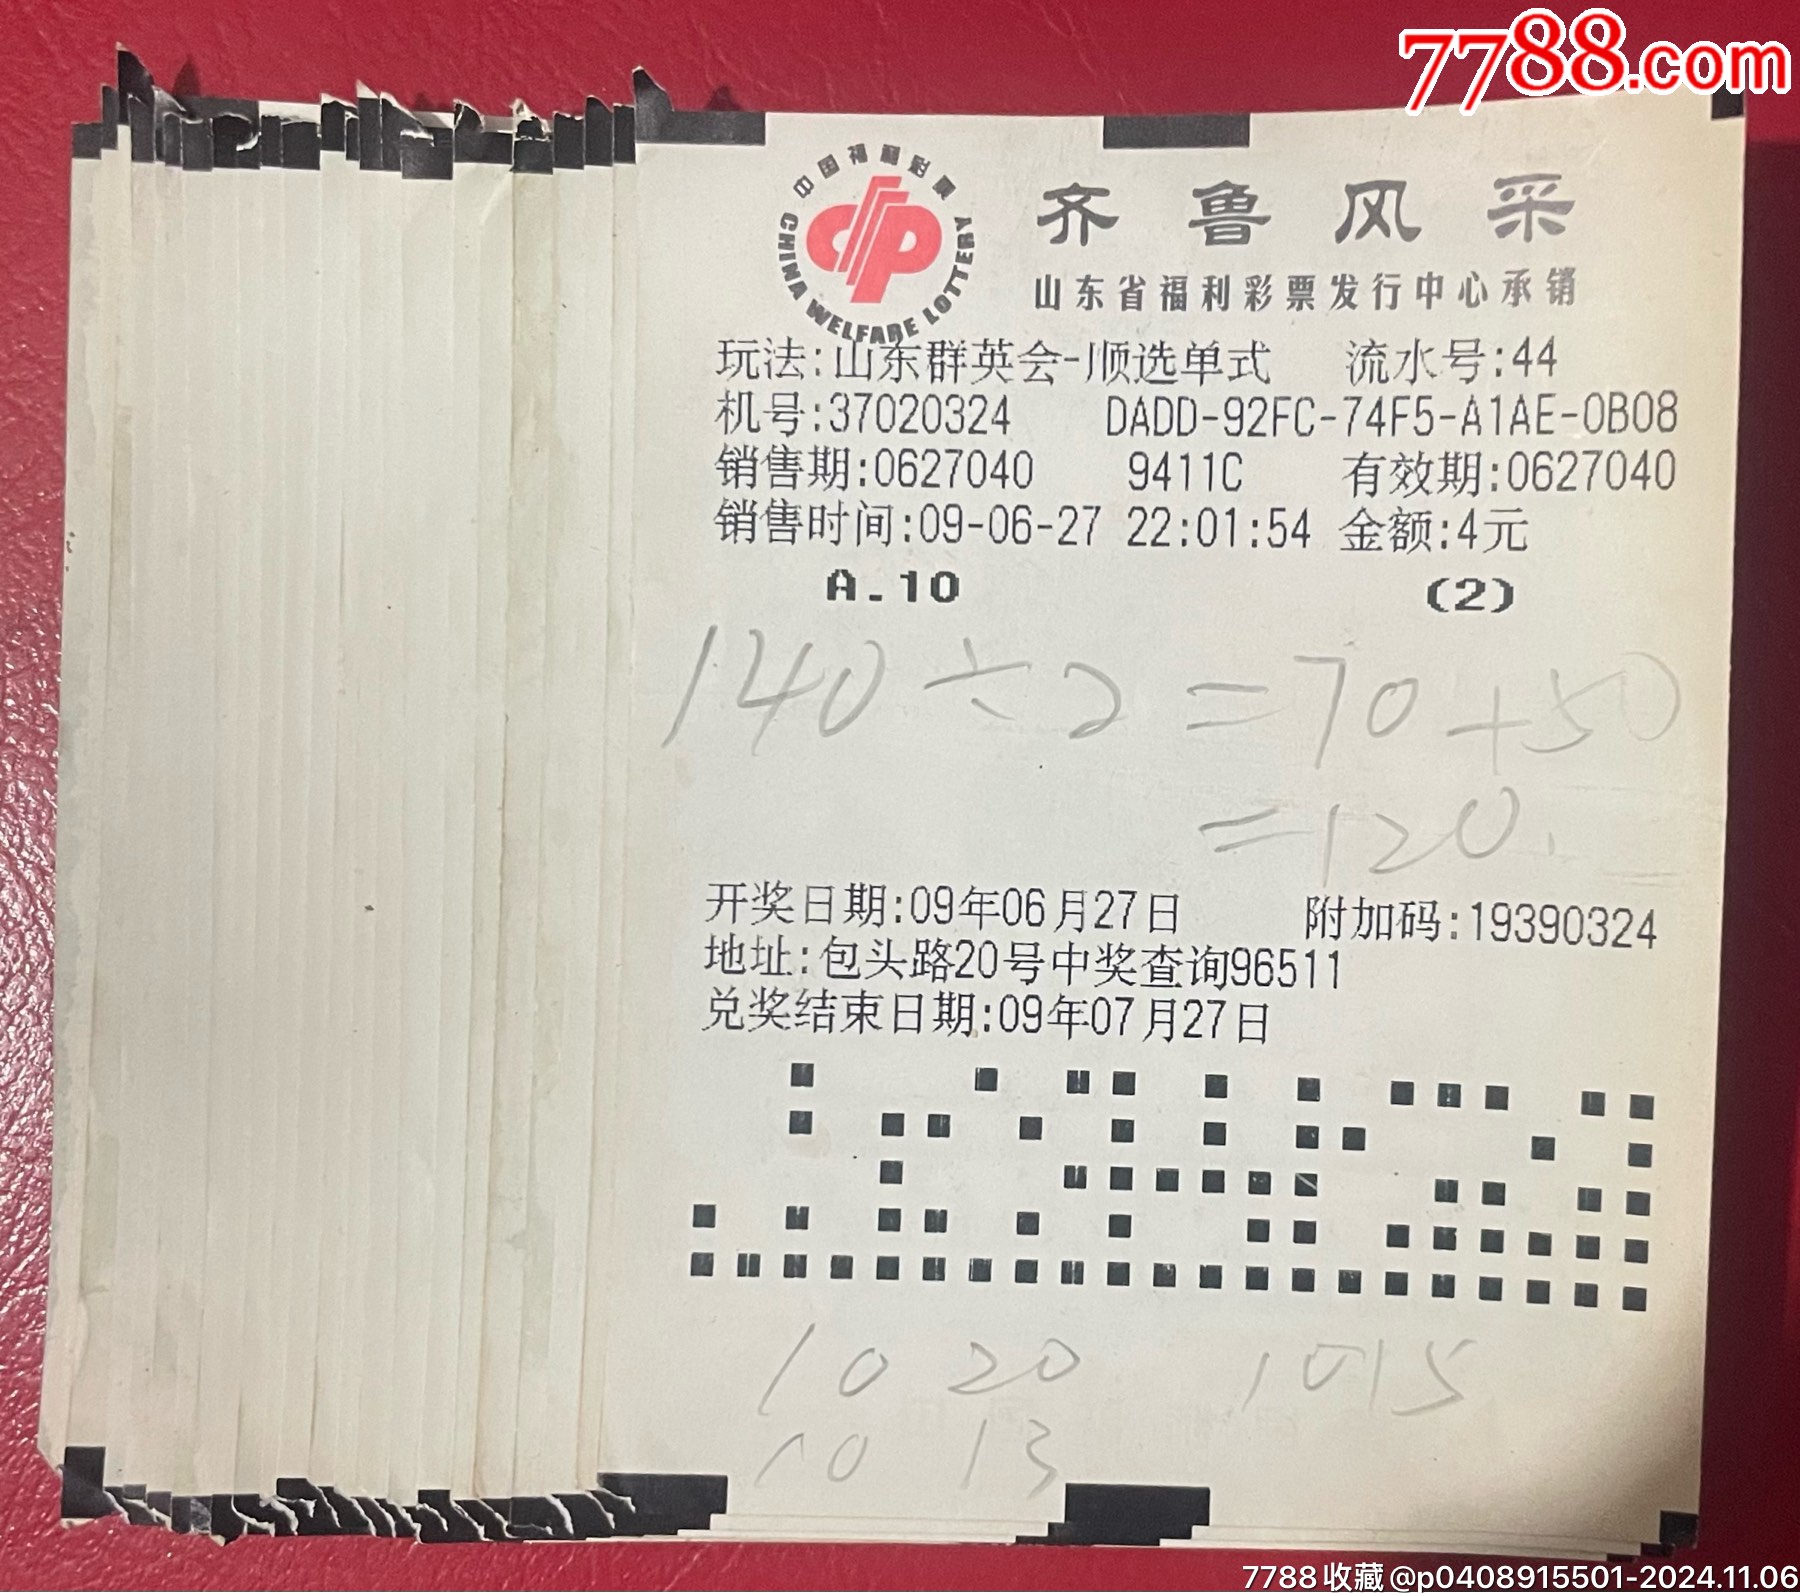 7788.com
中国福利彩票
CHINA WELFARE LOTTERY
齐鲁风采
山东省福利彩票发行中心承销
玩法:山东群英会-顺选单式 流水号:44
机号:37020324 DADD-92FC-74F5-A1AE-0B08
销售期:0627040 9411C 有效期:0627040
销售时间:09-06-27 22:01:54 金额:4元
A.10 (2)
140÷2=70+50
=120.
开奖日期:09年06月27日 附加码:19390324
地址:包头路20号中奖查询96511
兑奖结束日期:09年07月27日
10 20 1015
10 13
7788收藏@p0408915501-2024.11.06